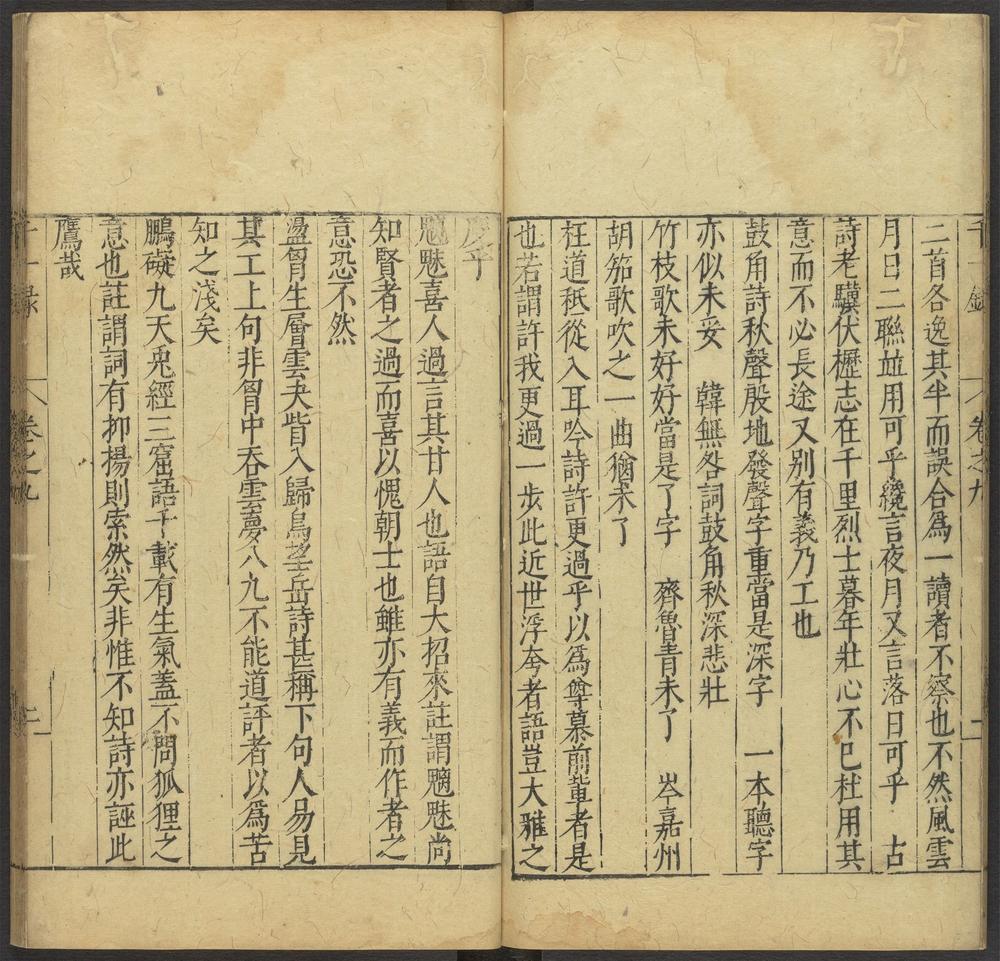 千一錄 卷之九 二
二首各逸其半而誤合爲一讀者不察也不然風雲
月日二聯並用可乎纔言夜月又言落日可乎 古
詩老驥伏櫪志在千里烈士暮年壯心不已杜用其
意而不必長途又别有義乃工也
鼓角詩秋聲殷地發聲字重當是深字 一本聽字
亦似未妥 韓無咎詞鼓角秋深悲壯
竹枝歌未好好當是了字 齊魯青未了 岑嘉州
胡笳歌吹之一曲猶未了
枉道秪從入耳吟詩許更過乎以爲尊慕前輩者是
也若謂許我更過一步此近世浮夸者語豈大雅之
度乎
魑魅喜人過言其甘人也語自大招來註謂魑魅尚
知賢者之過而喜以愧朝士也雖亦有義而作者之
意恐不然
盪胷生層雲夬眥入歸鳥望岳詩甚稱下句人易見
其工上句非胷中吞雲夢八九不能道評者以爲苦
知之淺矣
鵬礙九天兎經三窟語千載有生氣蓋不問狐狸之
意也註謂詞有抑揚則索然矣非惟不知詩亦誣此
鷹哉
千一録 卷之九 二